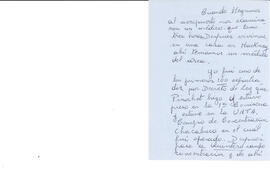 Cuando llegamos
al aeropuerto nos examina
con un médico que
tres horas. Después vivimos
en una casa en Hackney
ahí tenemos un médico
del área.
Yo fuí uno de
los primeros 100 expulsa
dos por Decreto de Ley que
Pinochet hizo y estuve
preso en la 1ª Comisaría
estuve en la
Campo de Concentración
Chacabuco en el cual
fuí operado. Después
pasé la
concentración y de ahí